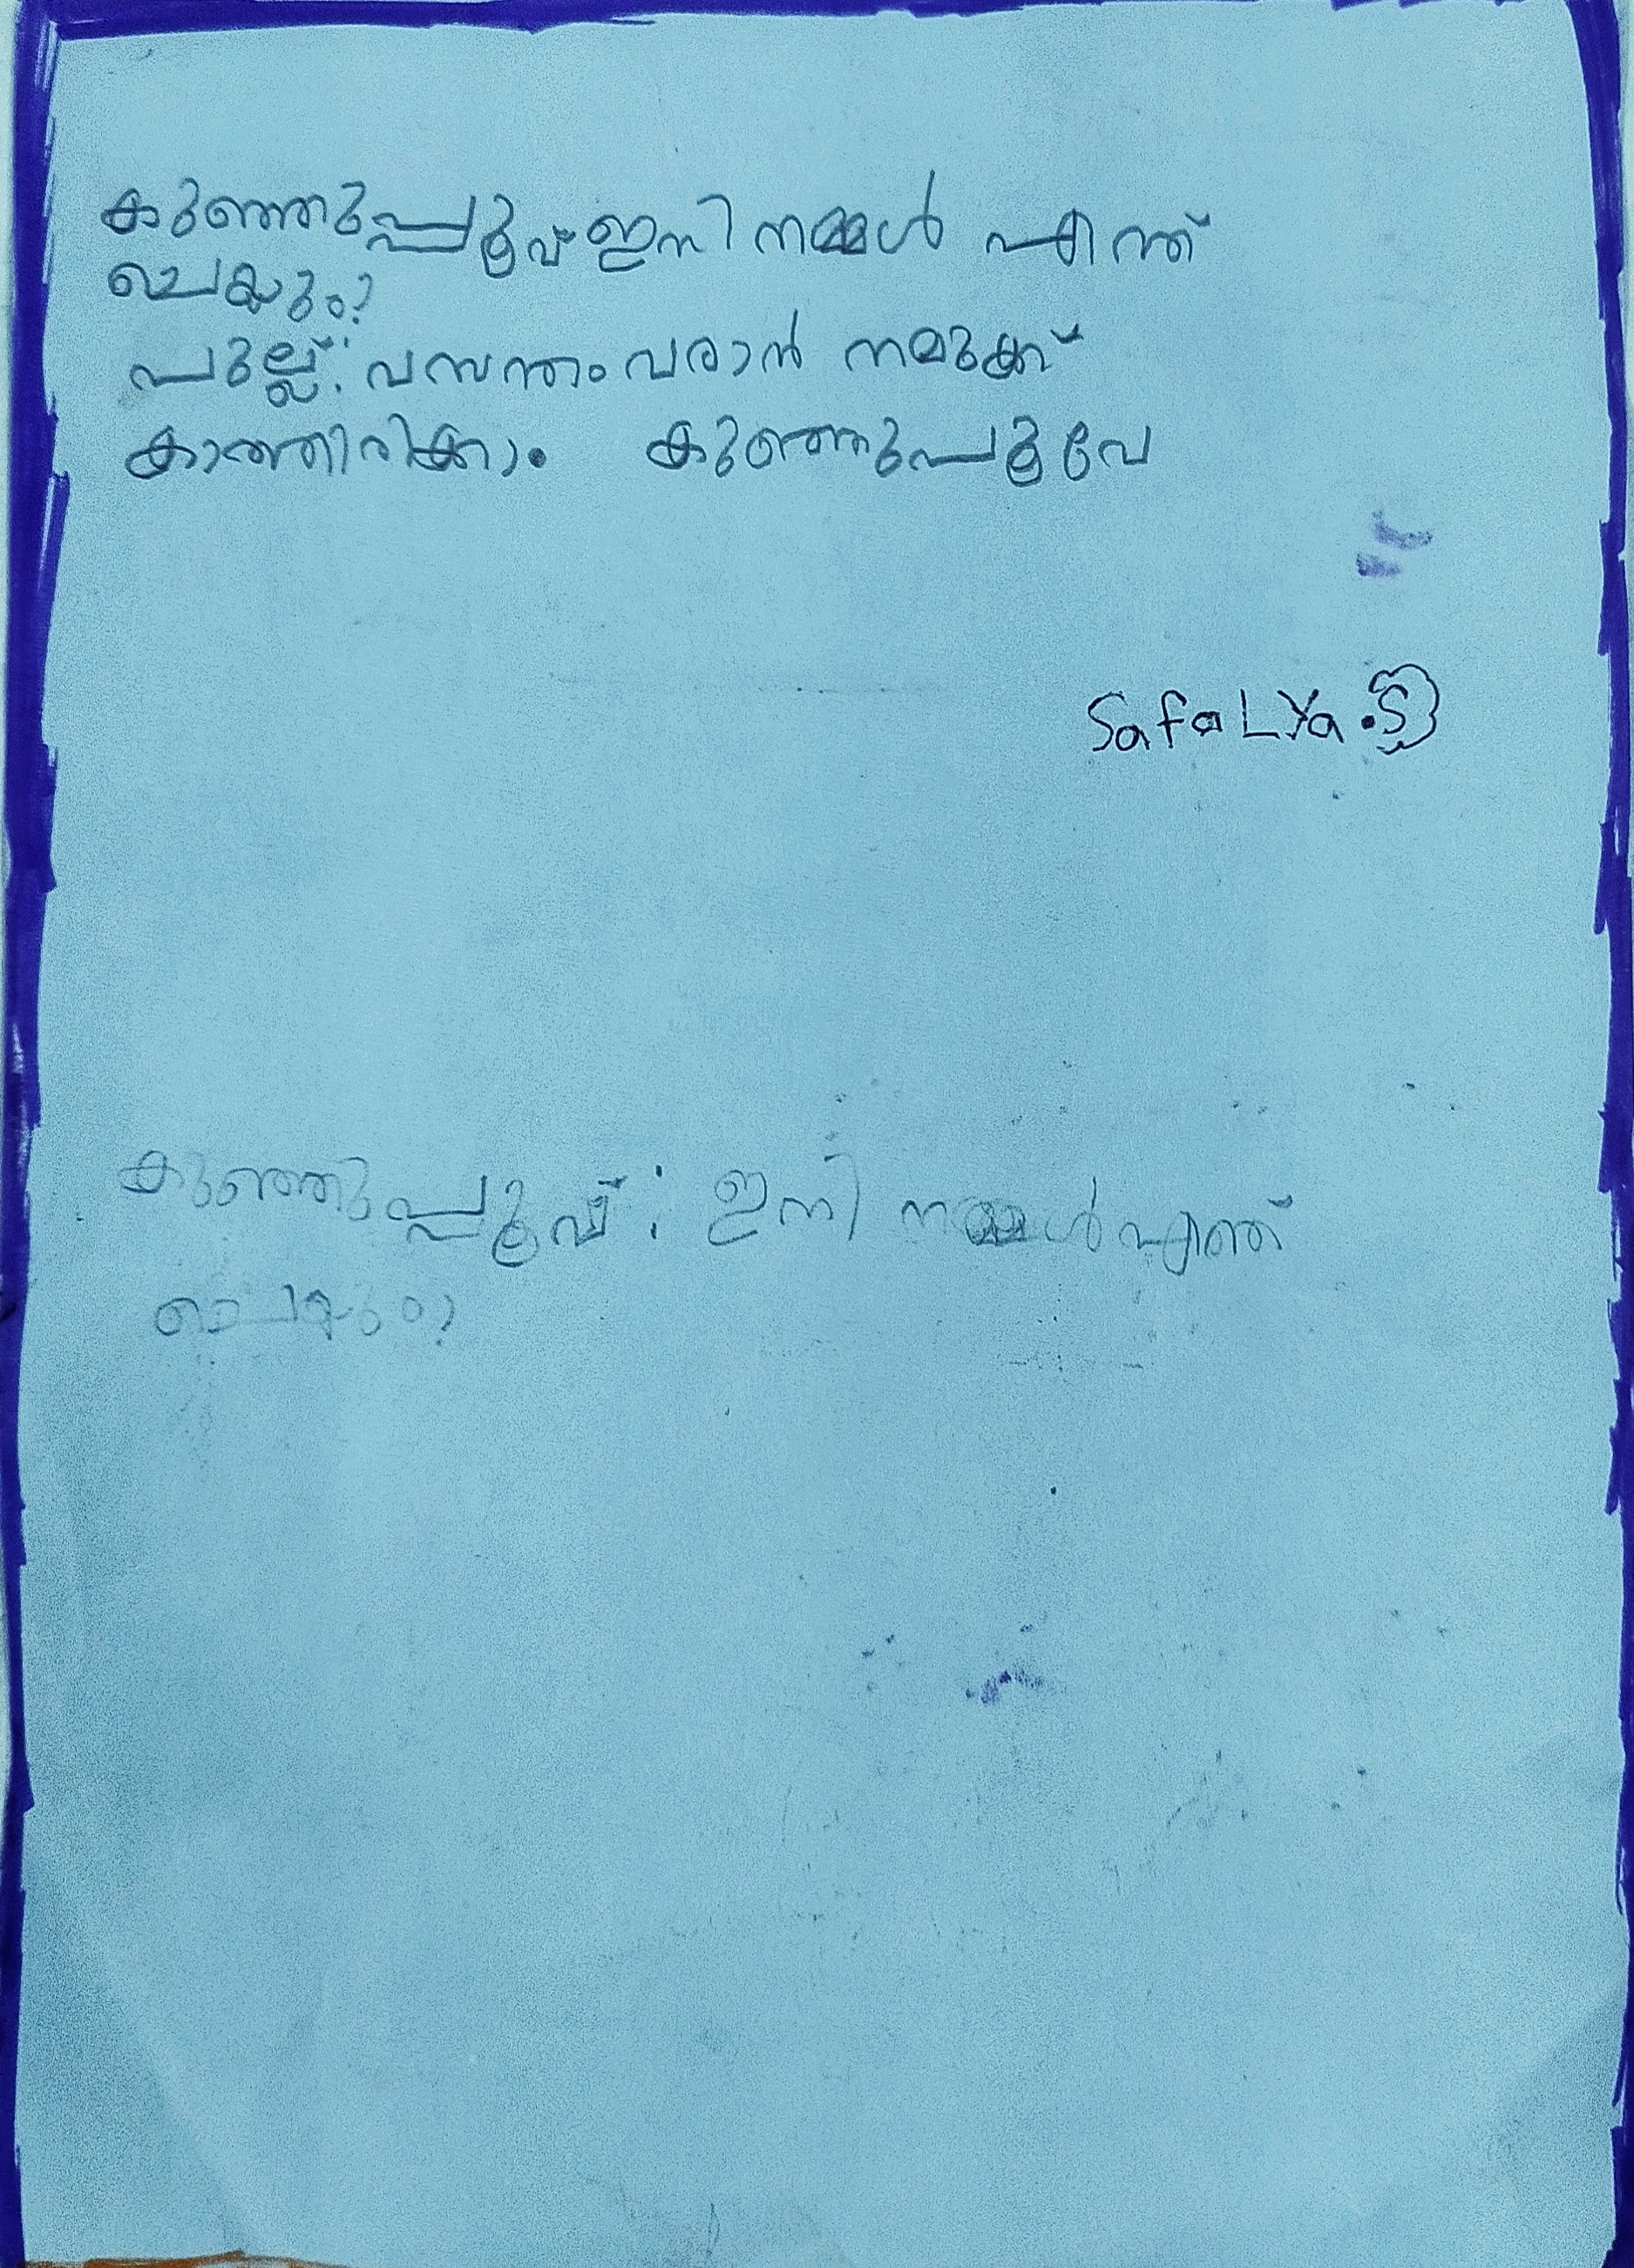 കുഞ്ഞുപ്പൂവ് ഇനി നമ്മൾ എന്ത്
ചെയും?
പുല്ല്: വസന്തം വരാൻ നമുക്ക്
കാത്തിരിക്കാം. കുഞ്ഞുപൂവേ
SafaLYa.S
കുഞ്ഞുപ്പൂവ്: ഇനി നമ്മൾ എന്ത്
ചെയും?